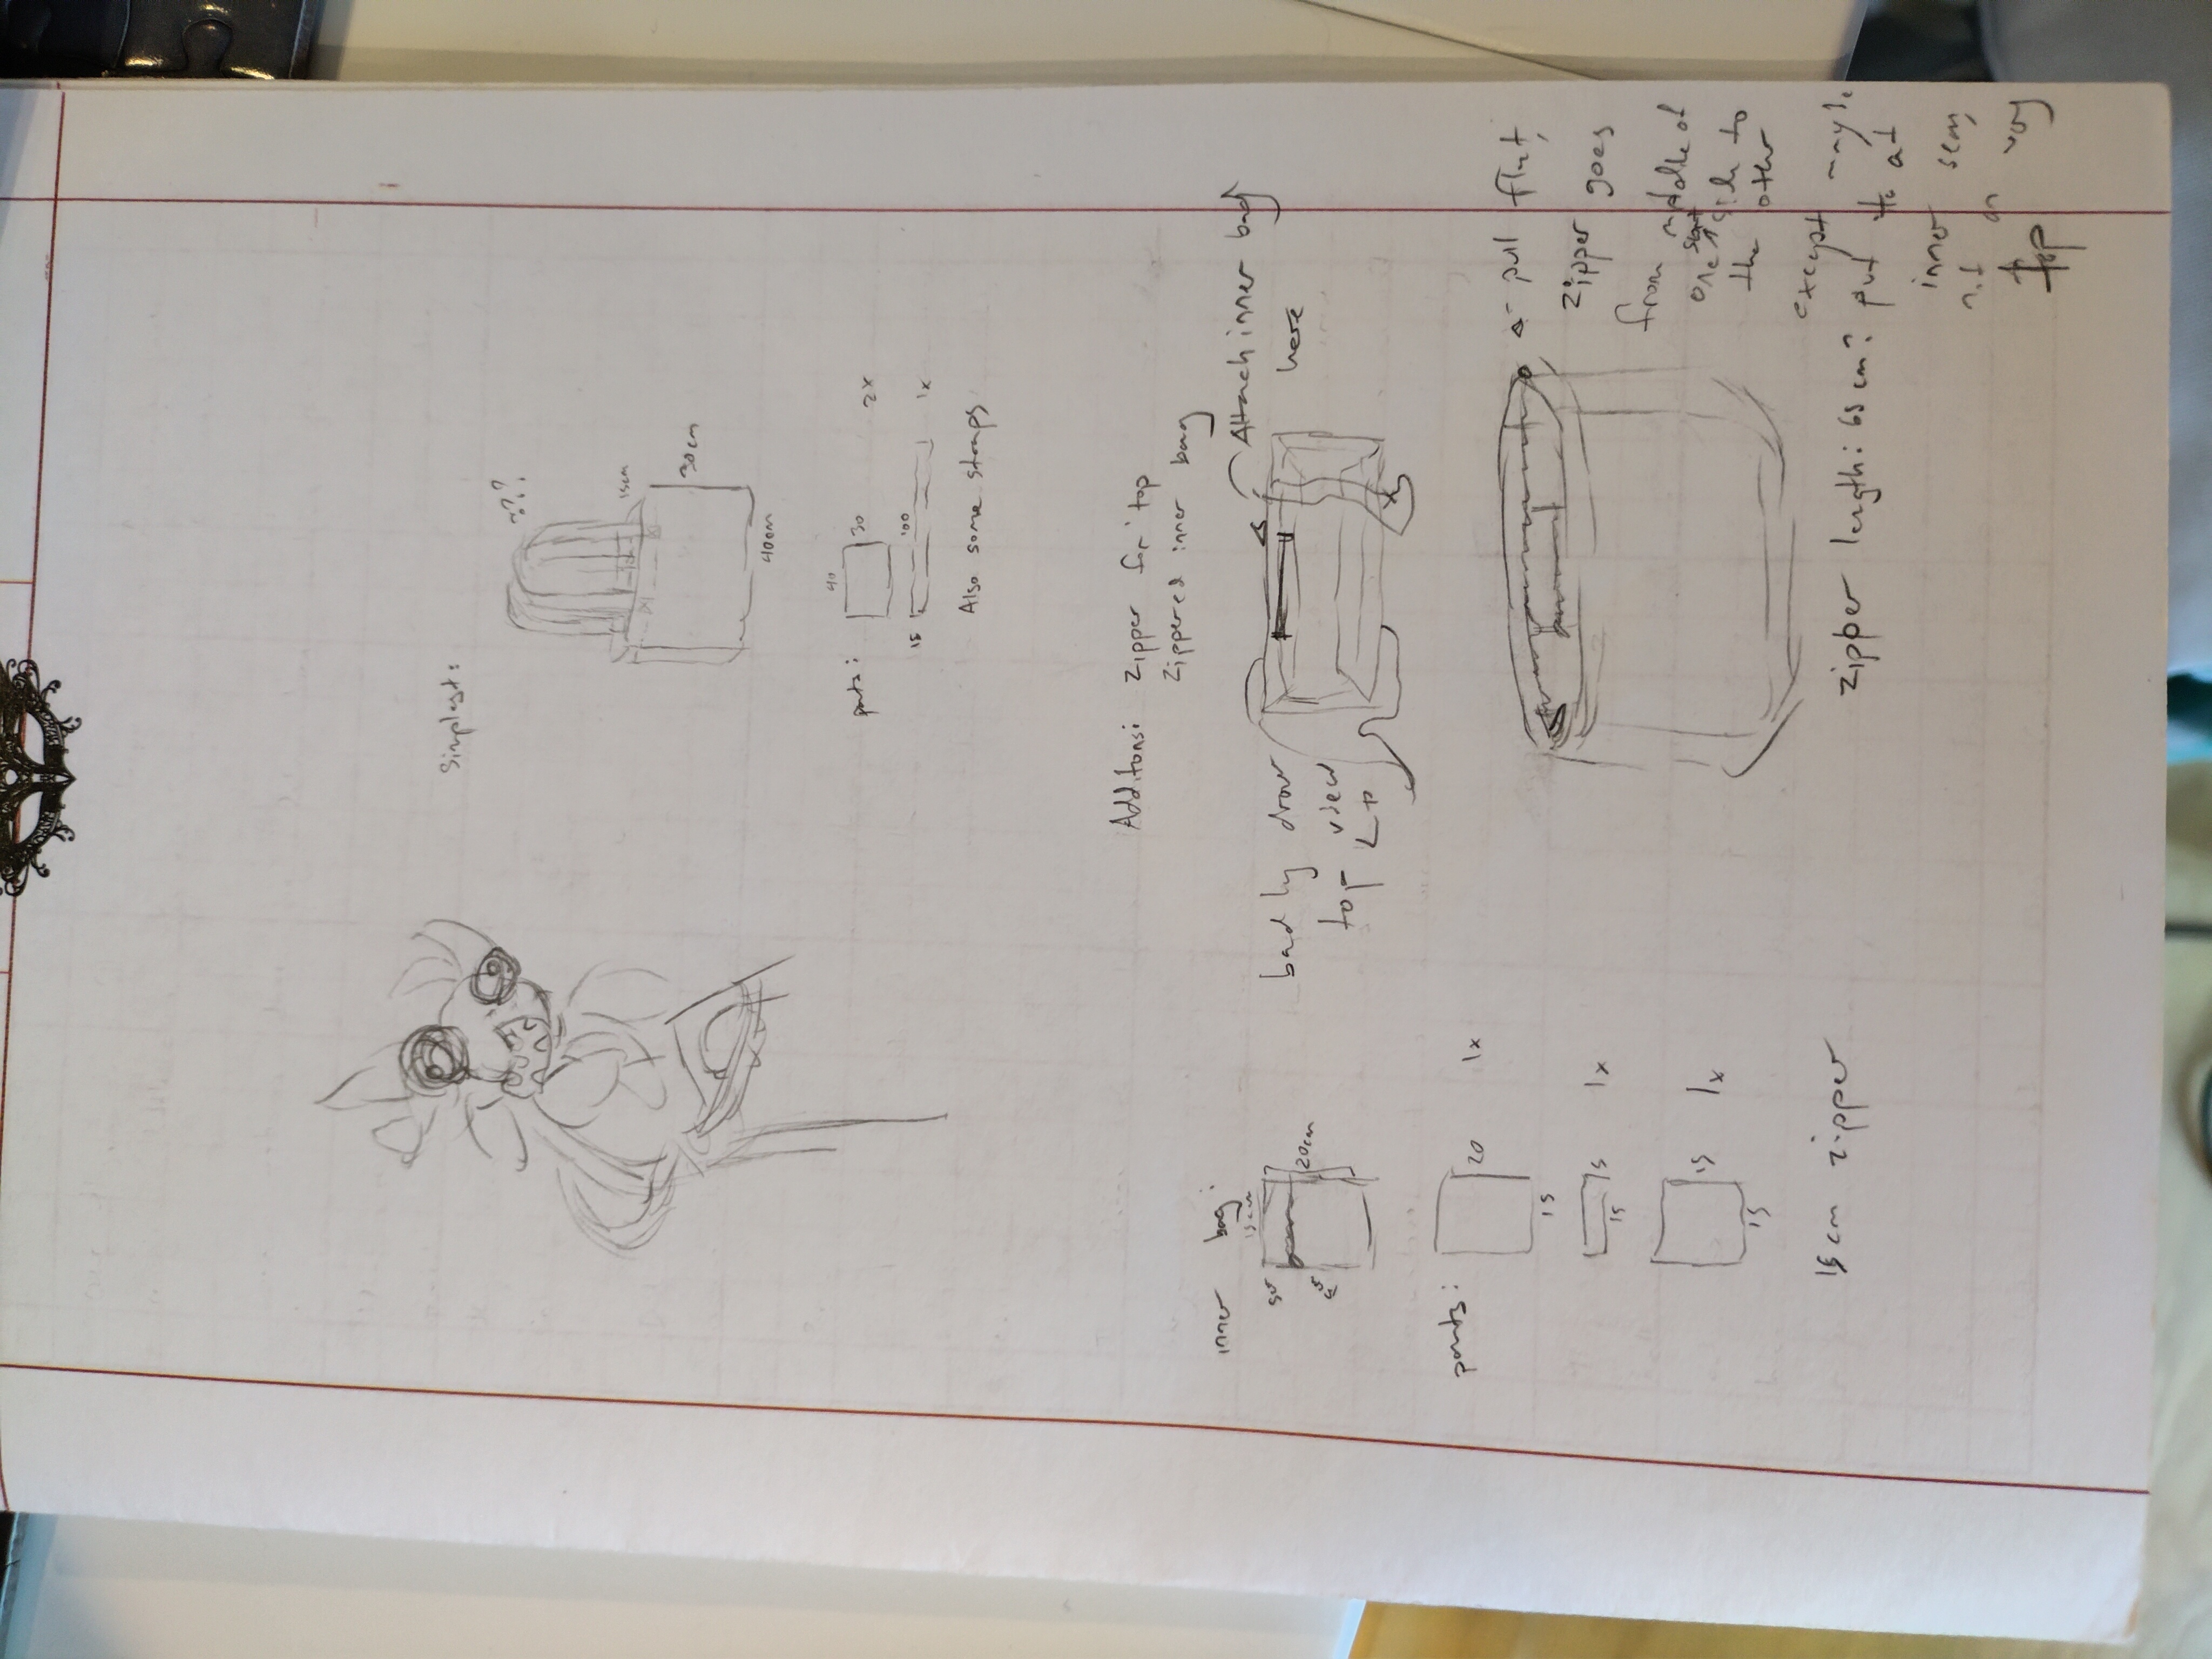 Simplest:
???
15cm
30cm
40cm
parts:
40
30
2x
15
100
1x
Also some straps
Additions: zipper for top
zippered inner bag
Attach inner bag
here
badly draw
top view
inner bag:
15cm
20cm
5
15
parts:
20
15
1x
5
15
1x
15
15
1x
15cm zipper
pull flat,
zipper goes
from middle of
one short side to
the other
except maybe
put it at
inner seam,
not on very
top
zipper length: 65cm?